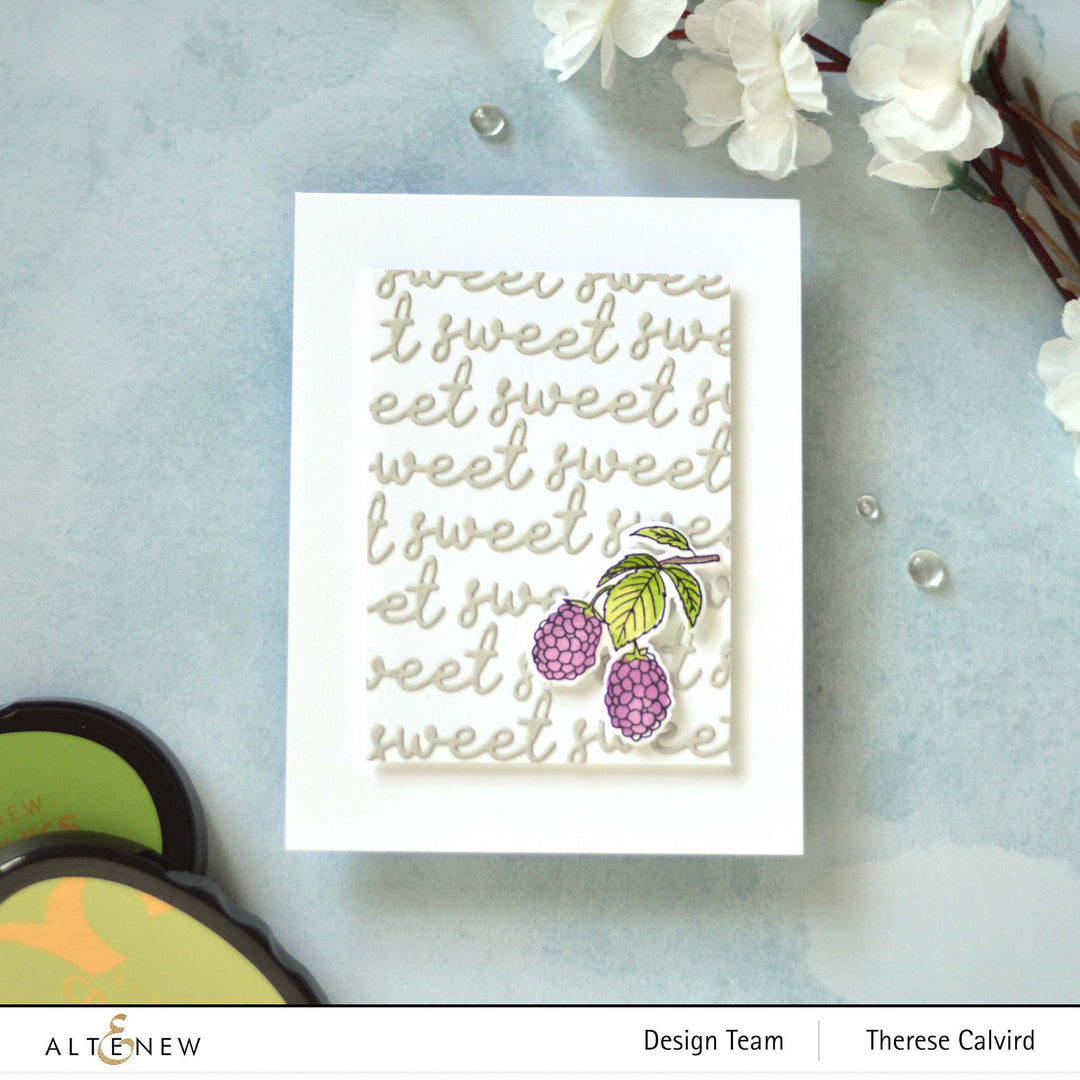 sweet sweet
t sweet swe
eet sweet sw
weet sweet
t sweet swee
eet swe
weet s t s
sweet sweet
NEW
INKS
ALTENEW
Design Team
Therese Calvird